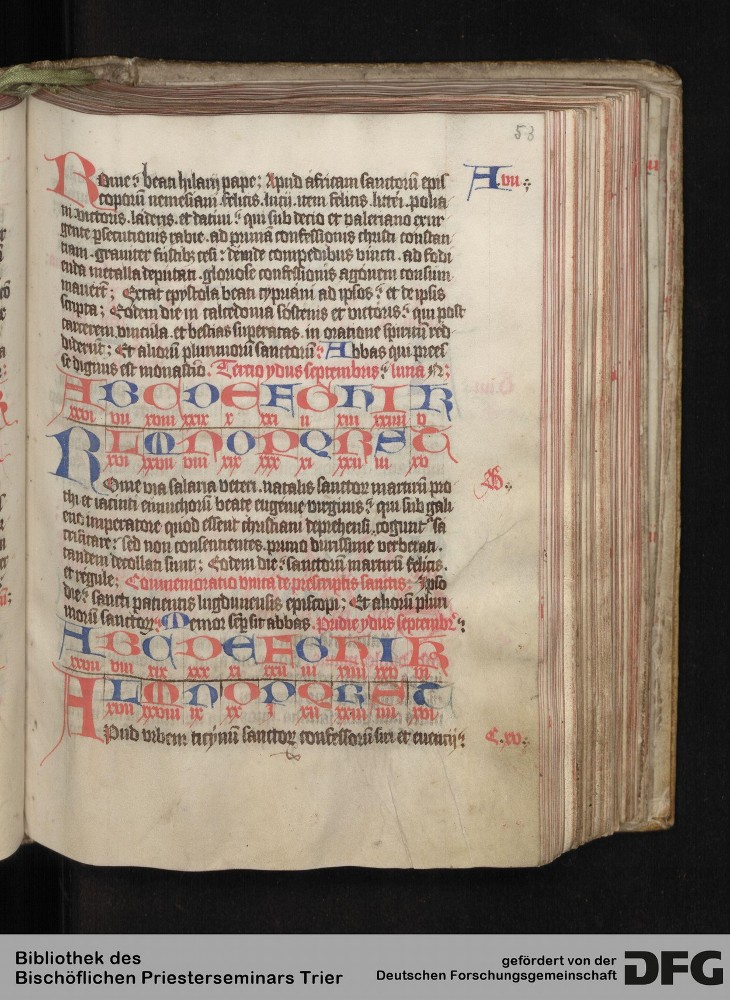 53
Rome ⁊ beati hilarij pape; Apud africam sanctorū epis
coporū nemesiani. felicis. lucij. item felicis. litei. polia
ni. victoris. laderis. et datiui; qui sub decio et valeriano exur
gente ꝑsecutionis rabie. ad primā confessionis christi constan
tiam. grauiter fustibꝫ cesi; deinde compedibus vincti. ad fodi
enda metalla deputati. gloriose confessionis agonem consum
mauerūt; Extat epystola beati cypriani ad ipsos; et de ipsis
scripta; Eodem die in calcedonia sostenis et victoris; qui post
carcerem. vincula. et bestias superatas. in oratione spiritū red
diderūt; Et aliorū plurimorū sanctorū; Abbas qui prees
se dignus est monastīo. Tertio ydus septembris; luna N;
A.vii.
A B C D E F G H I K
xxvi vii xviii xxix x xxi ii xiii xxiiii v
L M N O P Q R S T
xvi xxvii viii xix xxx xi xxii iii xv
Rome via salaria veteri. natalis sanctoꝝ martirū pro
thi et iacincti eunuchorū beate eugenie virginis; qui sub gali
eno imperatore quod essent christiani deprehensi. cogunt᷑ sa
crificare; sed non consentientes. primo durissime verberati.
tandem decollati sunt; Eodem die; sanctorū martirū felicis.
et regule; Commemoratio vnica de prescriptis sanctis; Ipso
die; sancti patientis lugdunensis episcopi; Et aliorū pluri
morū sanctoꝝ; Memor sꝑ sit abbas. Pridie ydus septembr̄;
B.
A B C D E F G H I K
xxvii viii xix xxx xi xxii iii xiiii xxv vi
L M N O P Q R S T
xvii xxviii ix xx I xii xxiii iiii xvi
Apud vrbem ticynū sanctoꝝ confessorū siri et euencij;
C.xv.
Bibliothek des
Bischöflichen Priesterseminars Trier
gefördert von der
Deutschen Forschungsgemeinschaft
DFG